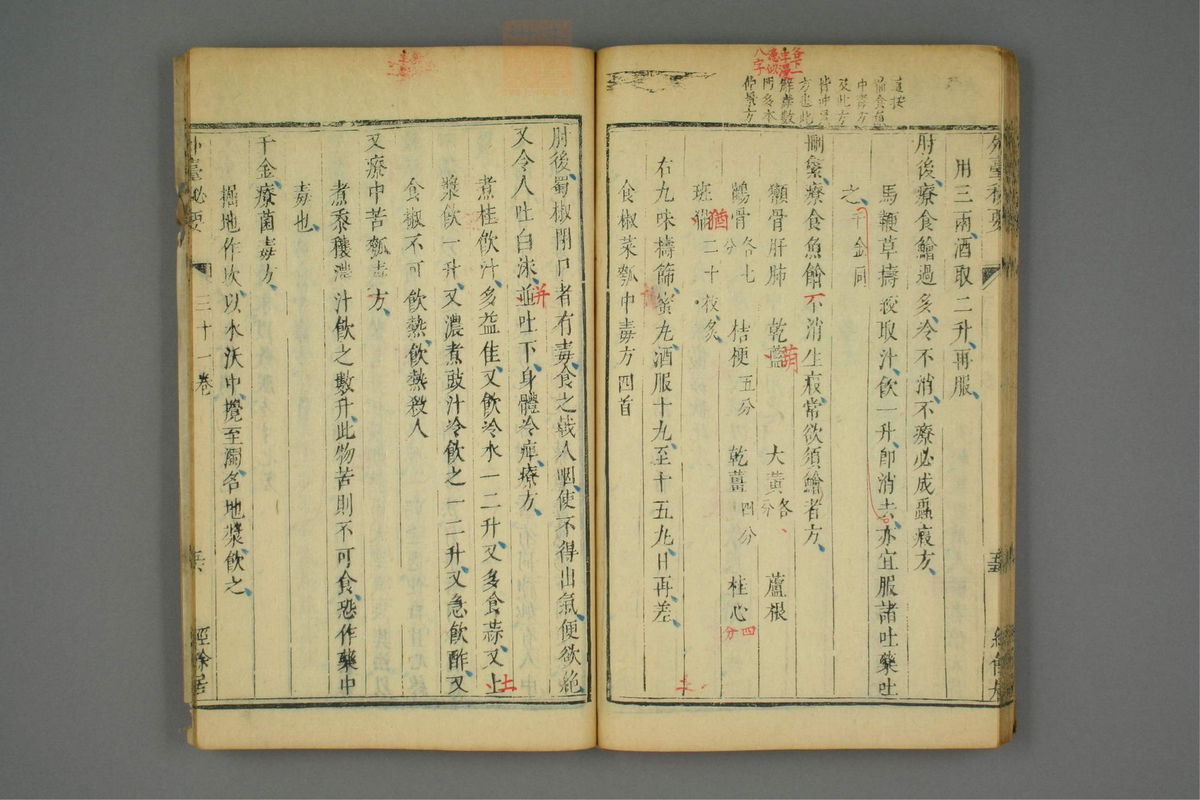 外臺秘要
用三兩酒取二升再服
肘後療食鱠過多冷不消不療必成蟲瘕方
馬鞭草擣絞取汁飲一升即消去亦宜服諸吐藥吐
之千金同
刪繁療食魚鱠不消生瘕常欲須鱠者方
獺骨肝肺 乾藍 大黃各 分 蘆根
鶴骨各七分 桔梗五分 乾薑四分 桂心
斑猫二十枚炙
右九味擣篩蜜丸酒服十丸至十五丸日再差
食椒菜瓠中毒方四首
猶
葫
四分
肘後蜀椒閉口者有毒食之戟人咽使不得出氣便欲絶
又令人吐白沫並吐下身體冷痺療方
煮桂飲汁多益佳又飲冷水一二升又多食蒜又土
漿飲一升又濃煮豉汁冷飲之一二升又急飲酢又
食椒不可飲熱飲熱殺人
又療中苦瓠毒方
煮黍穰濃汁飲之數升此物苦則不可食恐作藥中
毒也
千金療菌毒方
掘地作坎以水沃中攪至濁名地漿飲之
外臺秘要 三十一卷 經餘居
并
土